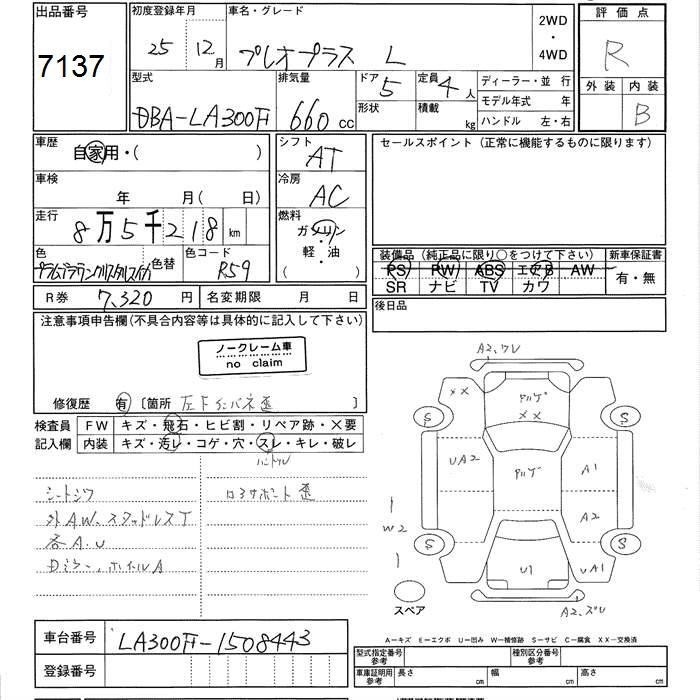 出品番号
7137
初度登録年月
25年 12月
車名・グレード
プレオプラス L
2WD
・
4WD
評価点
R
外装 内装
B
型式
DBA-LA300F
排気量
660 cc
ドア 5
形状
定員 4 人
積載 kg
ディーラー・並行
モデル年式 年
ハンドル 左・右
車歴
自家用・( )
シフト
AT
セールスポイント (正常に機能するものに限ります)
車検
年 月( 日)
冷房
AC
走行
8万5千218 km
燃料
ガソリン
軽・油
色
色替
色コード
R59
装備品 (純正品に限り○をつけて下さい)
PS PW ABS エアB AW
SR ナビ TV カワ
新車保証書
有・無
R券 7,320 円
名変期限 月 日
後日品
注意事項申告欄(不具合内容等は具体的に記入して下さい)
ノークレーム車
no claim
修復歴 有 〔箇所 左Fインパネ歪 〕
検査員
記入欄
FW キズ・飛石・ヒビ割・リペア跡・X要
内装 キズ・汚レ・コゲ・穴・スレ・キレ・破レ
ハンドル
シートシワ
外AW、スタッドレスT
各A.U
Dミラー、ホイルA
コアサポート歪
A2,ワレ
XX
アルゲ
XX
S
S
UA2
アルゲ
A1
A2
W2
S
S
U1
UA1
A2,ズレ
スペア
A－キズ E－エクボ U－凹み W－補修跡 S－サビ C－腐食 XX－交換済
車台番号 LA300F-1508443
登録番号
型式指定番号
参考
種別区分番号
参考
車庫証明用
参考
長さ cm
幅 cm
高さ cm